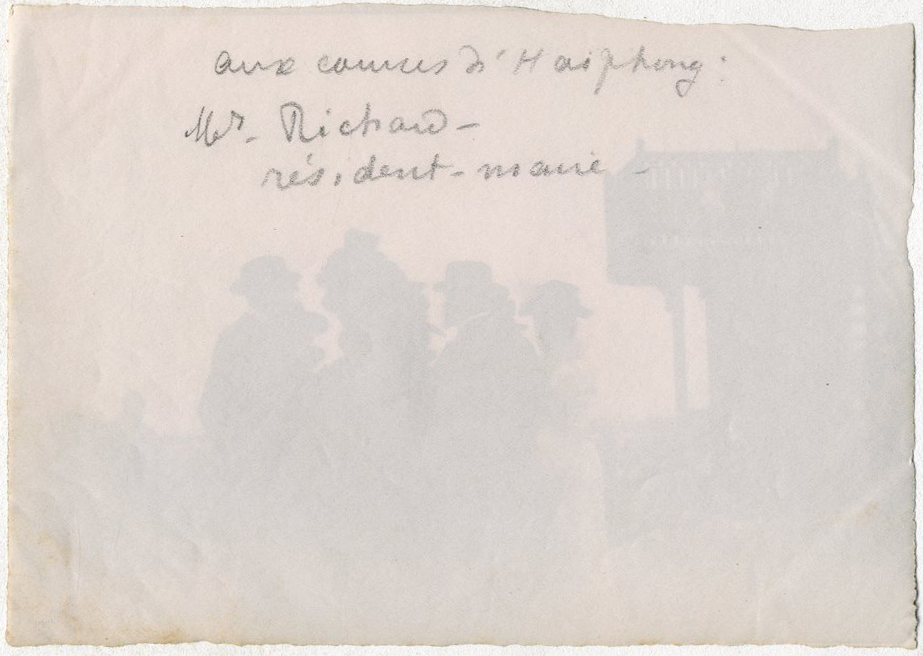 aux courses d'Haïphong :
Mr. Richard –
résident-maire –